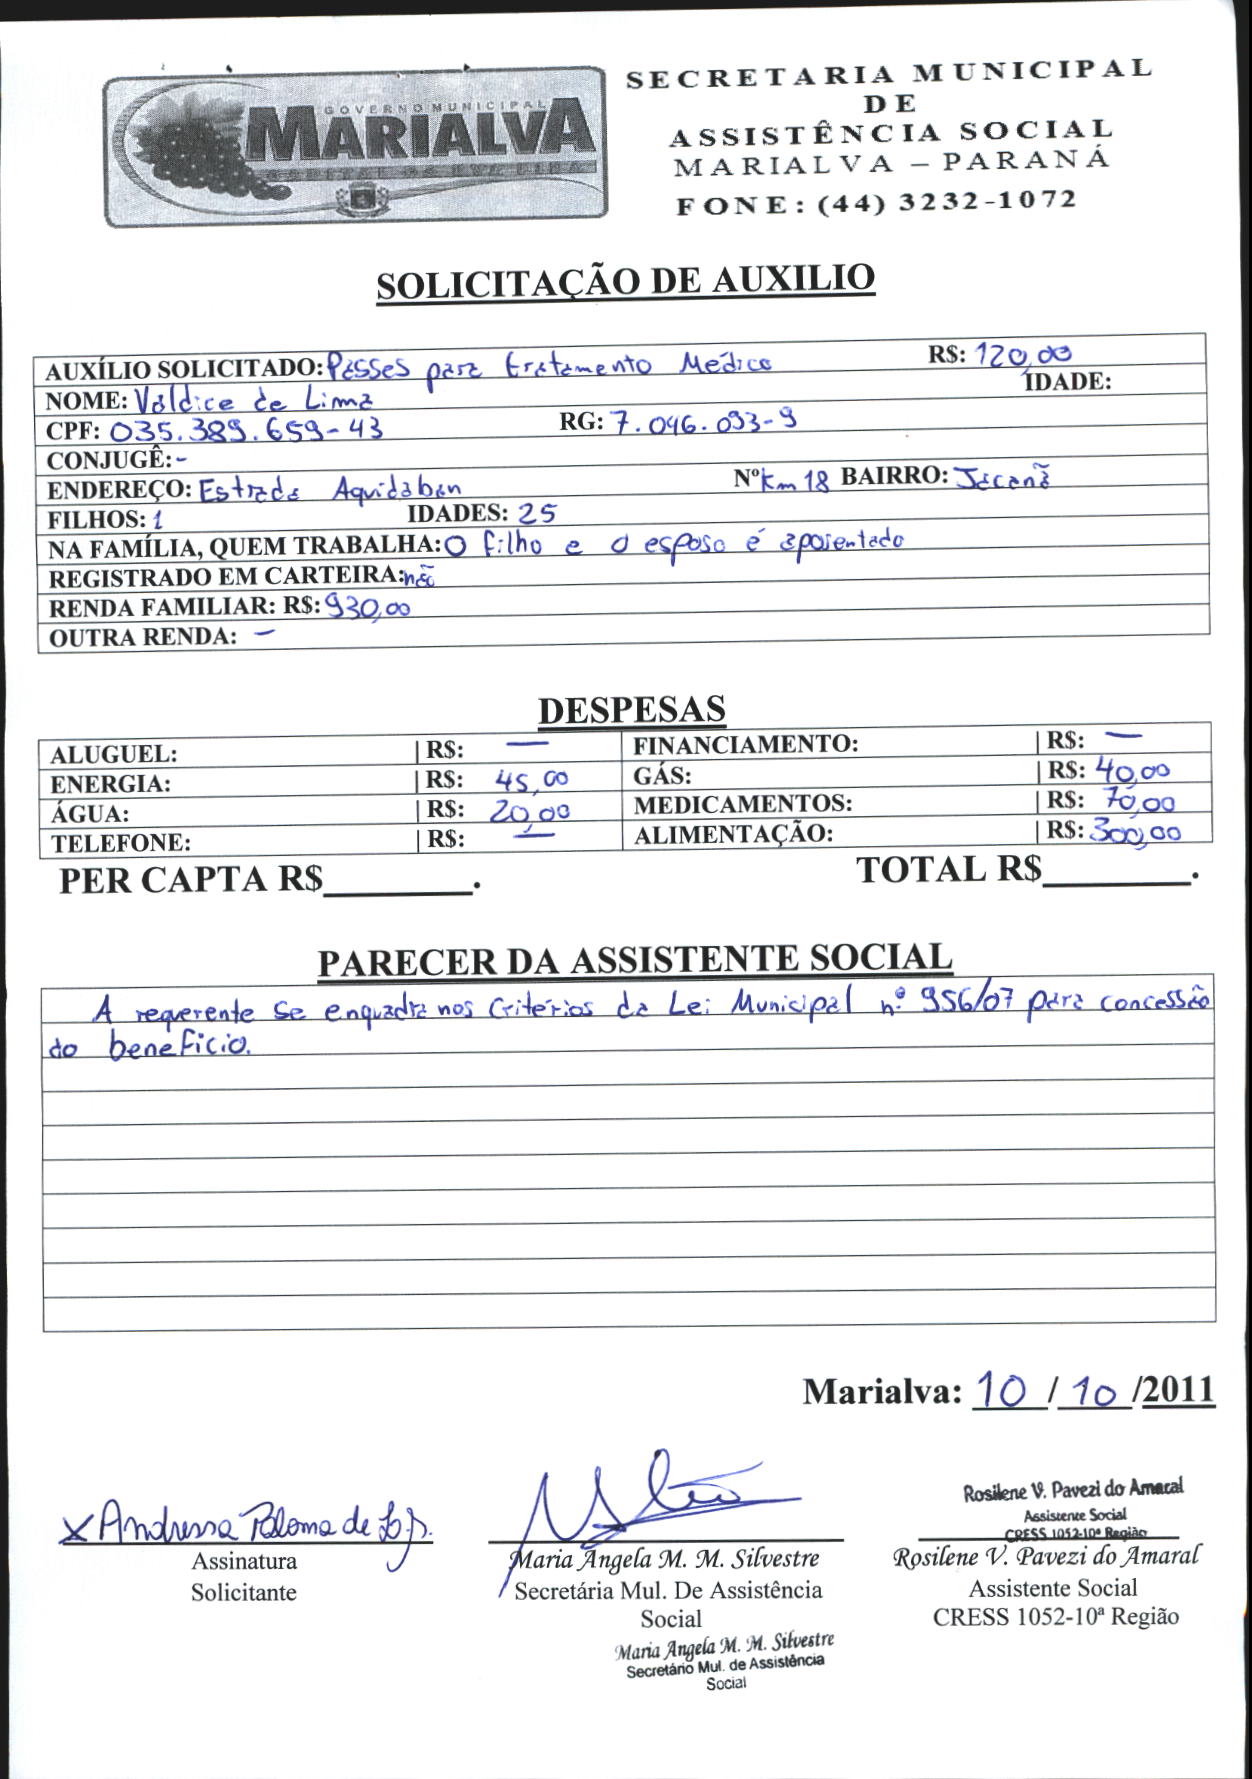 GOVERNO MUNICIPAL
MARIALVA
CAPITAL DA UVA FINA
SECRETARIA MUNICIPAL
DE
ASSISTÊNCIA SOCIAL
MARIALVA – PARANÁ
FONE: (44) 3232-1072
SOLICITAÇÃO DE AUXILIO
AUXÍLIO SOLICITADO: Passes para tratamento Médico R$: 120,00
NOME: Valdice de Lima IDADE:
CPF: 035.389.659-43 RG: 7.046.093-9
CONJUGÊ: -
ENDEREÇO: Estrada Aquidaban Nº Km 18 BAIRRO: Jacanã
FILHOS: 1 IDADES: 25
NA FAMÍLIA, QUEM TRABALHA: O filho e o esposo é aposentado
REGISTRADO EM CARTEIRA: não
RENDA FAMILIAR: R$: 930,00
OUTRA RENDA: —
DESPESAS
ALUGUEL: | R$: — FINANCIAMENTO: | R$: —
ENERGIA: | R$: 45,00 GÁS: | R$: 40,00
ÁGUA: | R$: 20,00 MEDICAMENTOS: | R$: 70,00
TELEFONE: | R$: — ALIMENTAÇÃO: | R$: 300,00
PER CAPTA R$________. TOTAL R$________.
PARECER DA ASSISTENTE SOCIAL
A requerente se enquadra nos critérios da Lei Municipal nº 956/07 para concessão
do benefício.
Marialva: 10 / 10 /2011
X Andressa Paloma de
Assinatura
Solicitante
Maria Angela M. M. Silvestre
Secretária Mul. De Assistência
Social
Maria Angela M. M. Silvestre
Secretário Mul. de Assistência
Social
Rosilene V. Pavezi do Amaral
Assistente Social
CRESS 1052-10ª Região
Rosilene V. Pavezi do Amaral
Assistente Social
CRESS 1052-10ª Região